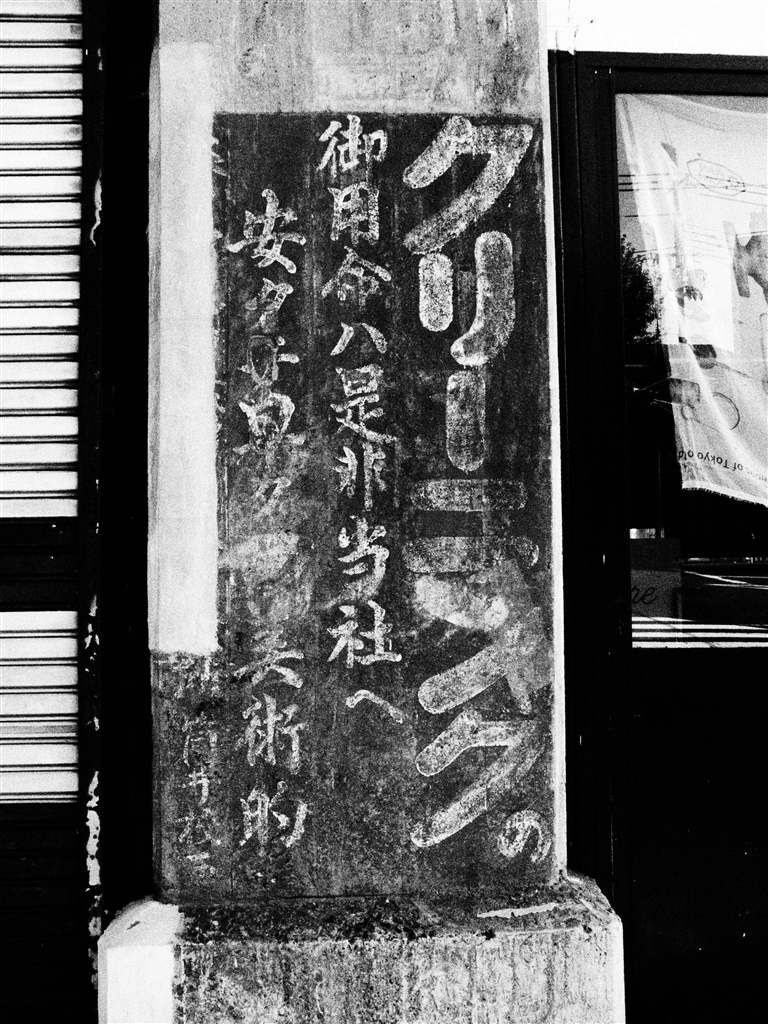 クリーニングの
御用命ハ是非当社へ
安ク 美術的
筒井
of Tokyo old